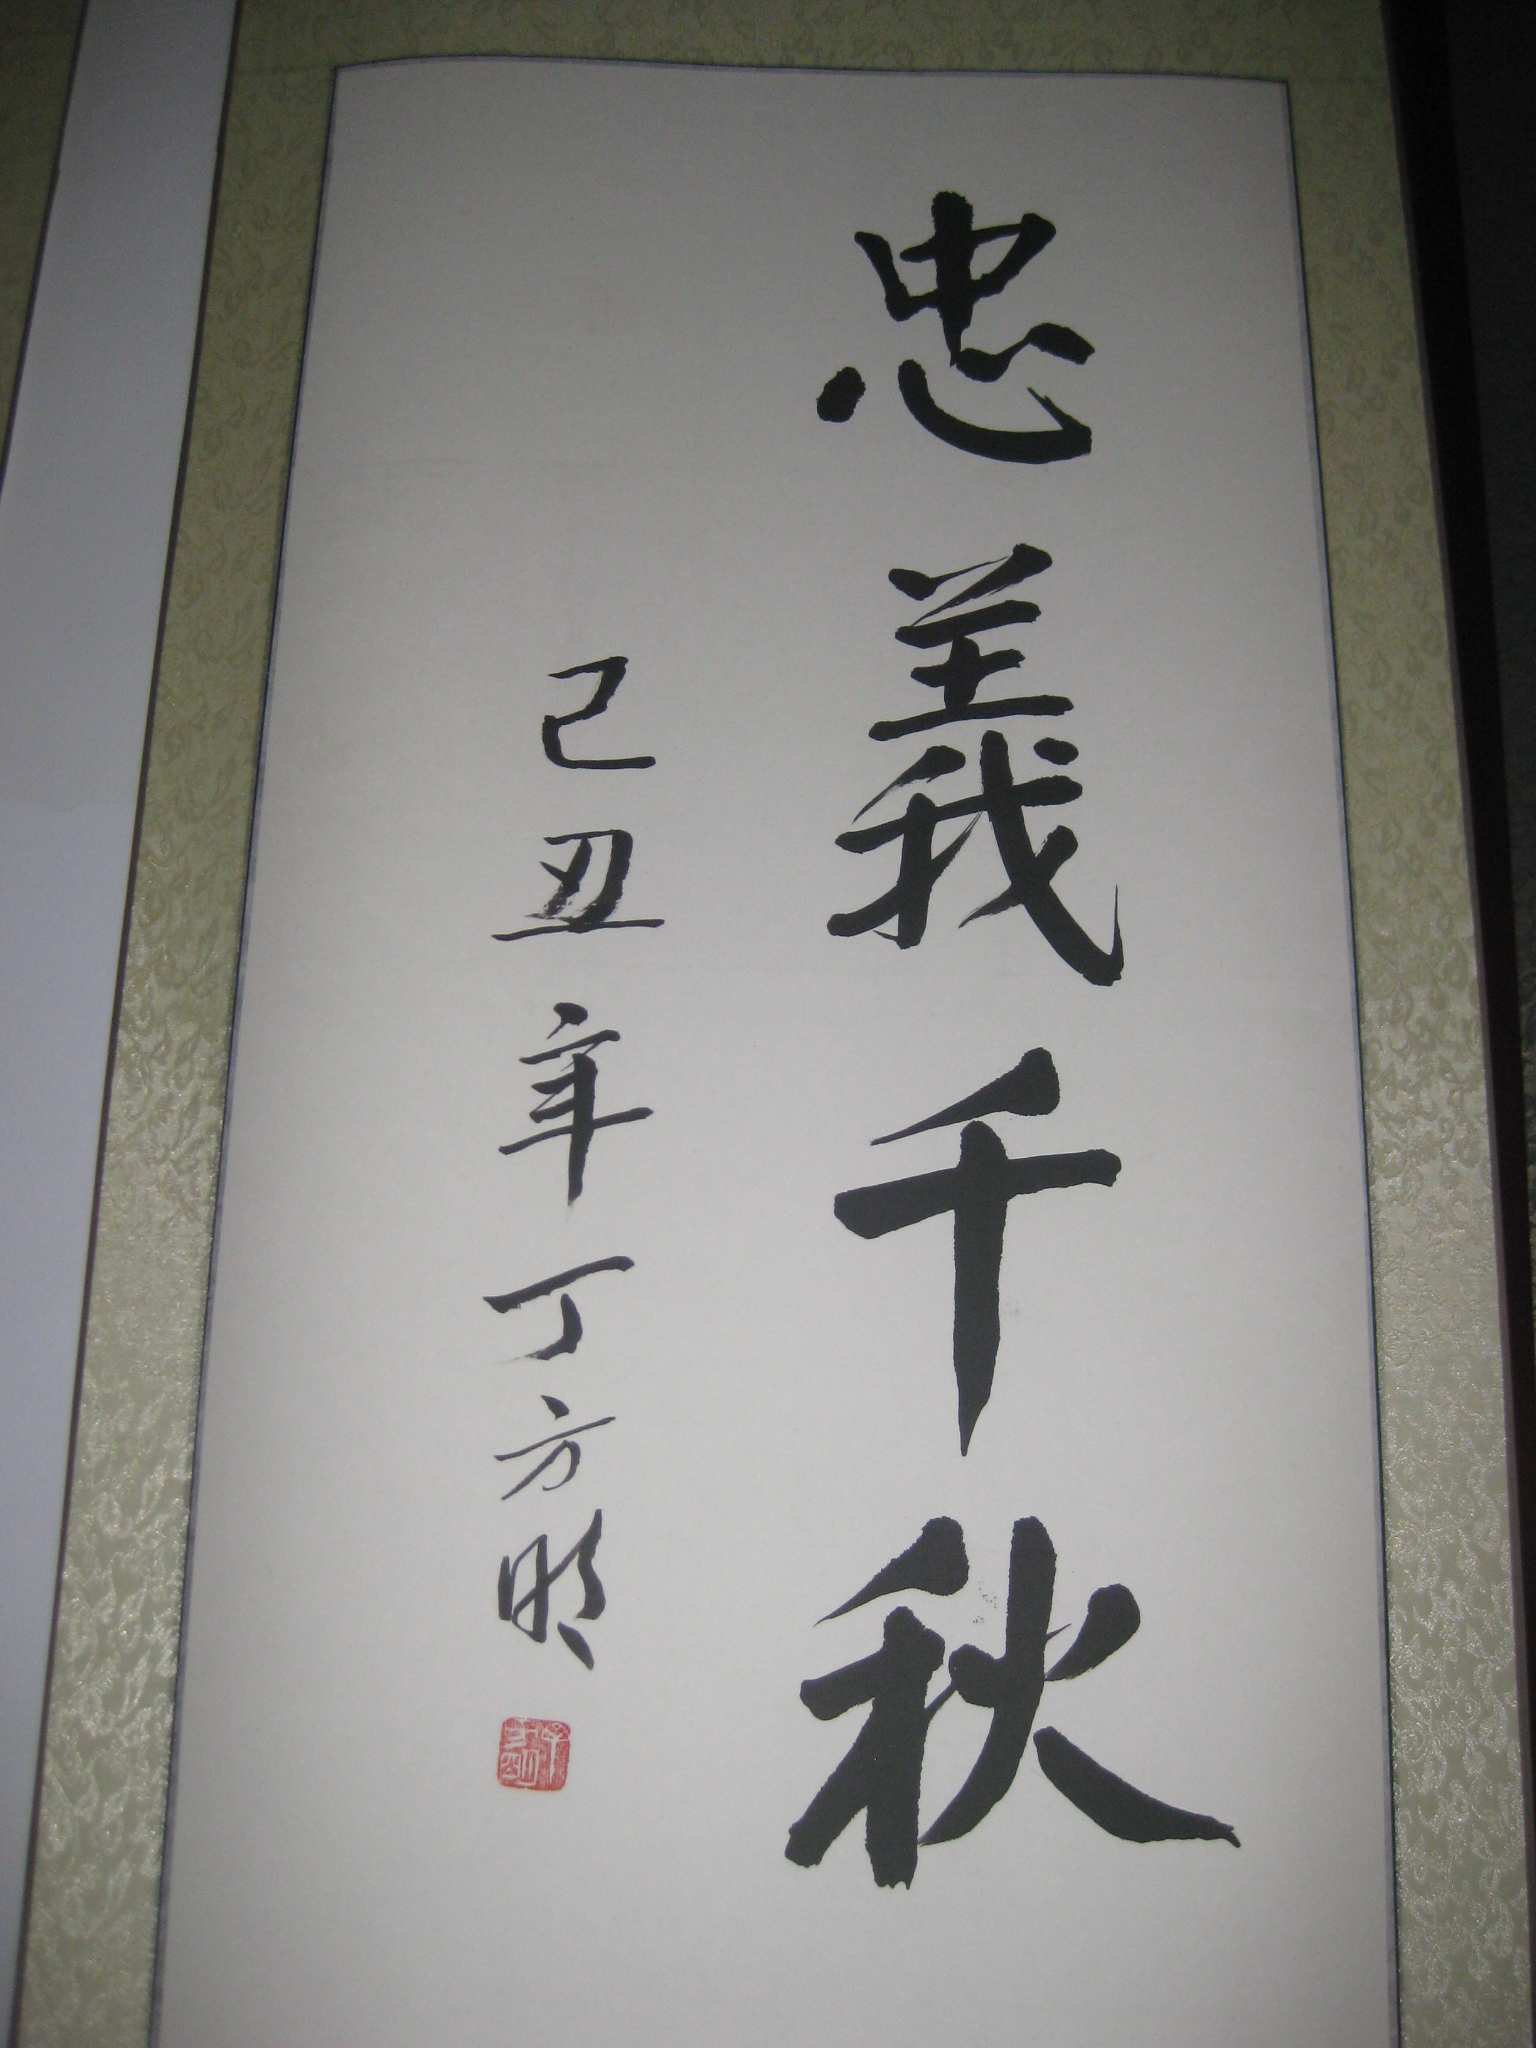 忠義千秋
己丑年丁方明